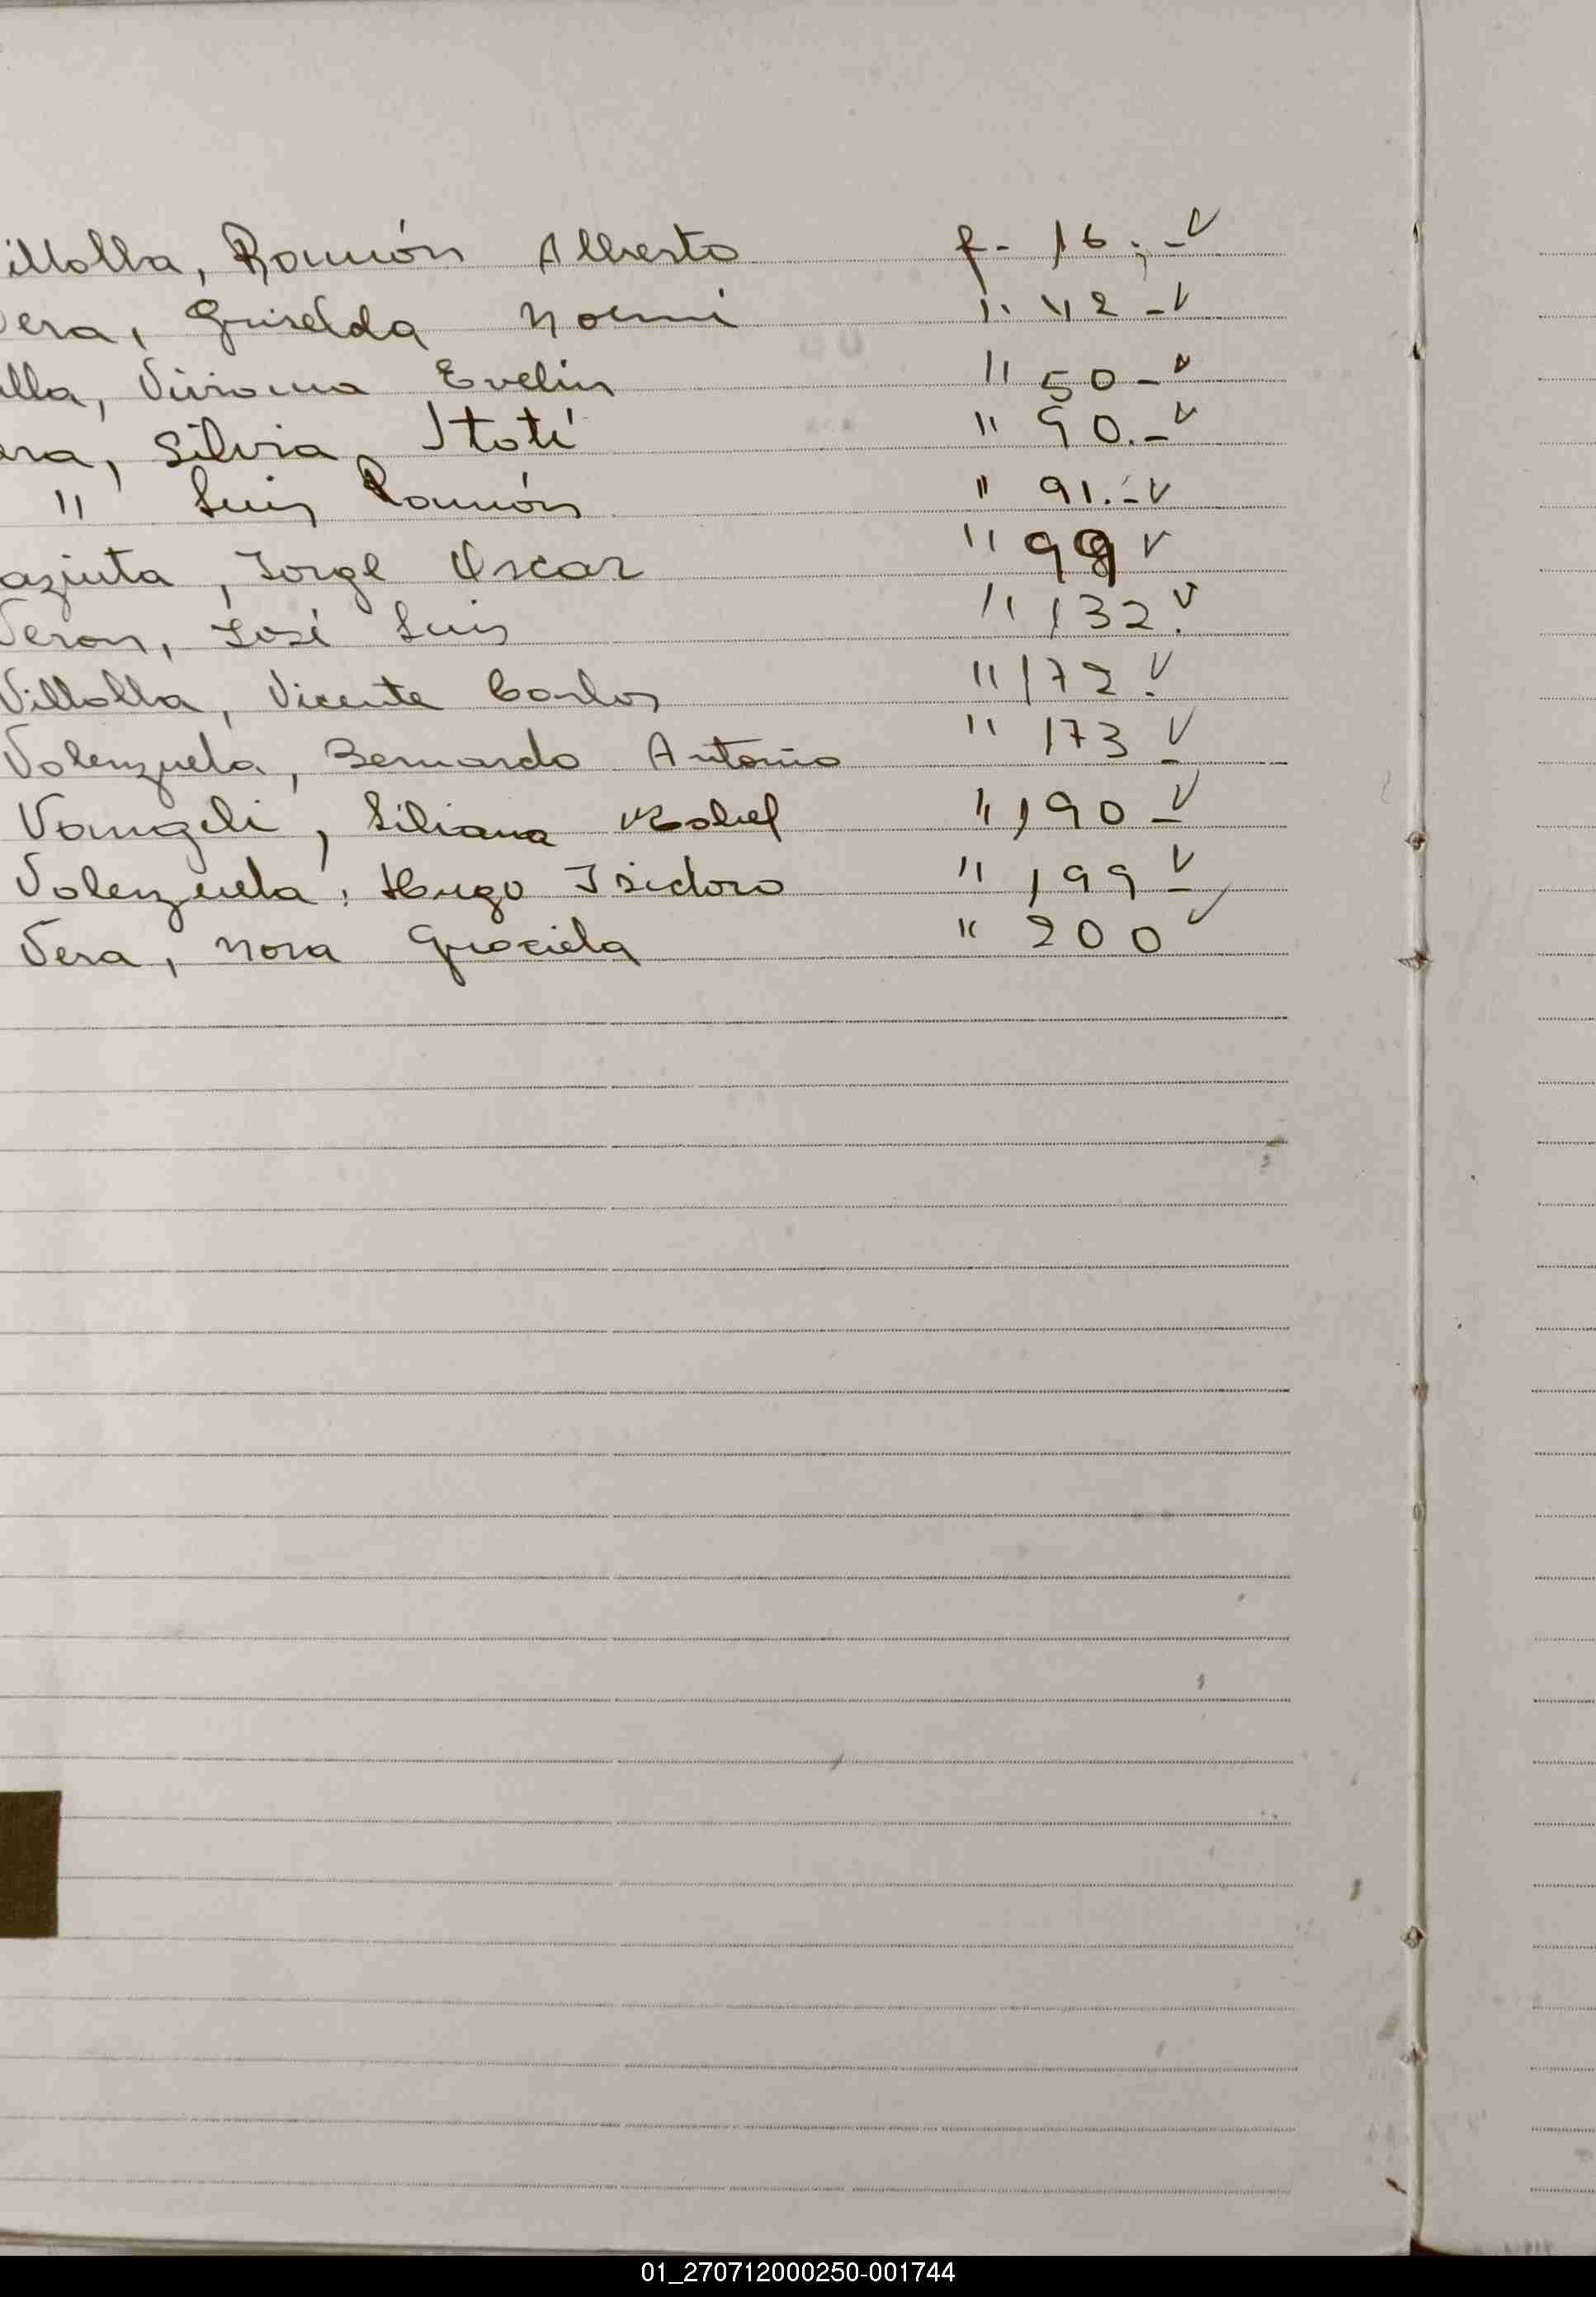 illalba, Ramón Alberto f- 16.-V
era, Griselda Noemi " 42-V
alla, Viviana Evelin " 50-V
era, Silvia Itatí " 90.-V
" Luis Ramón " 91.-V
azinta, Jorge Oscar " 99 V
Veron, José Luis " 132.V
Villalba, Vicente Carlos " 172.V
Valenzuela, Bernardo Antonio " 173-V
Vangeli, Liliana Isabel " 190-V
Valenzuela, Hugo Isidoro " 199-V
Vera, Nora Graciela " 200 V
01_270712000250-001744